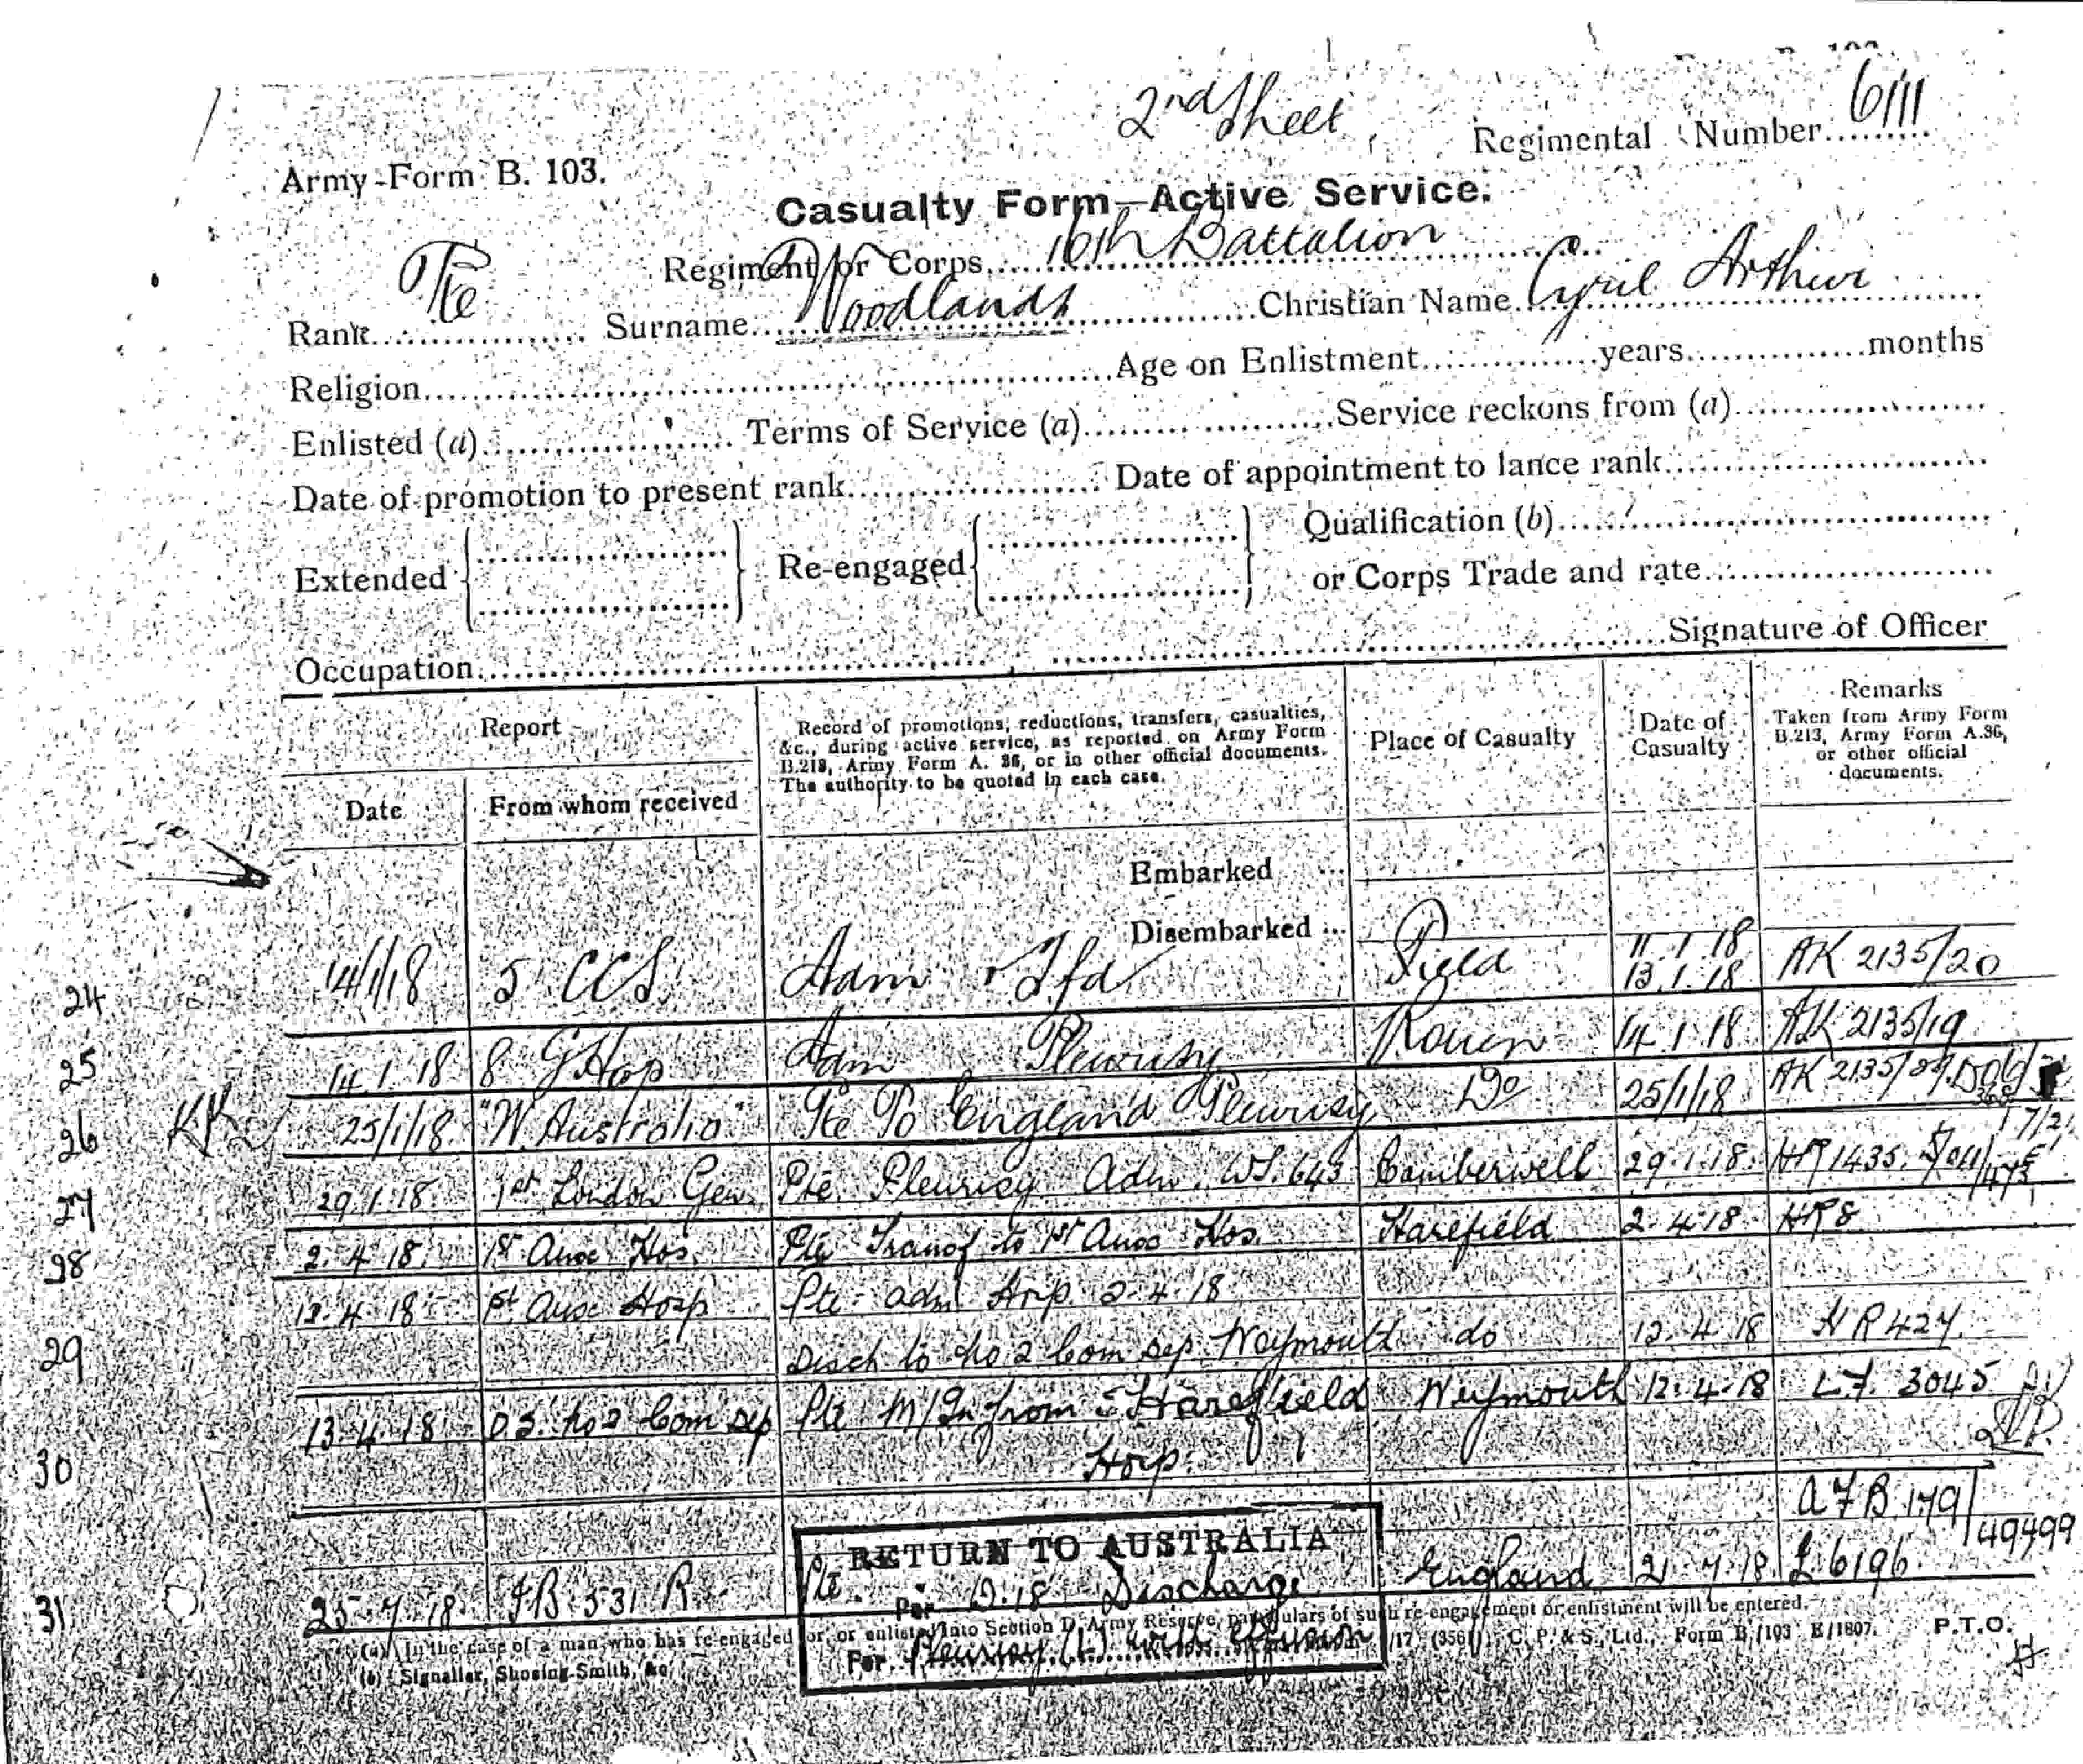 2nd Sheet
Regimental Number 6111
Army Form B. 103.
Casualty Form—Active Service.
Regiment or Corps 16th Battalion
Rank Pte Surname Woodlands Christian Name Cyril Arthur
Religion Age on Enlistment years months
Enlisted (a) Terms of Service (a) Service reckons from (a)
Date of promotion to present rank Date of appointment to lance rank
Extended Re-engaged Qualification (b)
or Corps Trade and rate
Occupation Signature of Officer
Report
Date From whom received
Record of promotions, reductions, transfers, casualties,
&c., during active service, as reported on Army Form
B.213, Army Form A. 36, or in other official documents.
The authority to be quoted in each case.
Place of Casualty
Date of
Casualty
Remarks
Taken from Army Form
B.213, Army Form A.36,
or other official
documents.
Embarked ...
Disembarked ...
24 14/1/18 5 CCS. Adm Tfd Field 11.1.18 13.1.18 AK 2135/20
25 14.1.18 8 G Hop Adm Pleurisy Rouen 14.1.18 AK 2135/19
26 25/1/18 "W. Australia" Pte To England Pleurisy Do 25/1/18 AK 2135/
27 29.1.18 1st London Gen. Pte Pleurisy Adm. WS. 643 Camberwell 29.1.18. HR 1435.
28 2.4.18 1st Auxc Hos. Pte Transf to 1st Auxc Hos. Harefield 2.4.18 HR 8
12.4.18 1st Auxc Hosp Pte adm Hosp 2.4.18
29 Disch to No 2 Com Dep Weymouth do 12.4.18 HR 427.
13.4.18 D.S. No 2 Com Dep Pte M/In from Harefield Weymouth 12.4.18 L.F. 3045
30 Hosp.
AFB.179/49499
RETURN TO AUSTRALIA
31 25.7.18. FB 531 R Pte Per D.18 Discharge England 21.7.18 L 6196.
For Pleurisy (L) with effusion
(a) In the case of a man who has re-engaged for, or enlisted into Section D, Army Reserve, particulars of such re-engagement or enlistment will be entered.
(b) Signaller, Shoeing-Smith, &c.
C. P. & S., Ltd., Form B./103 E/1807. P.T.O.